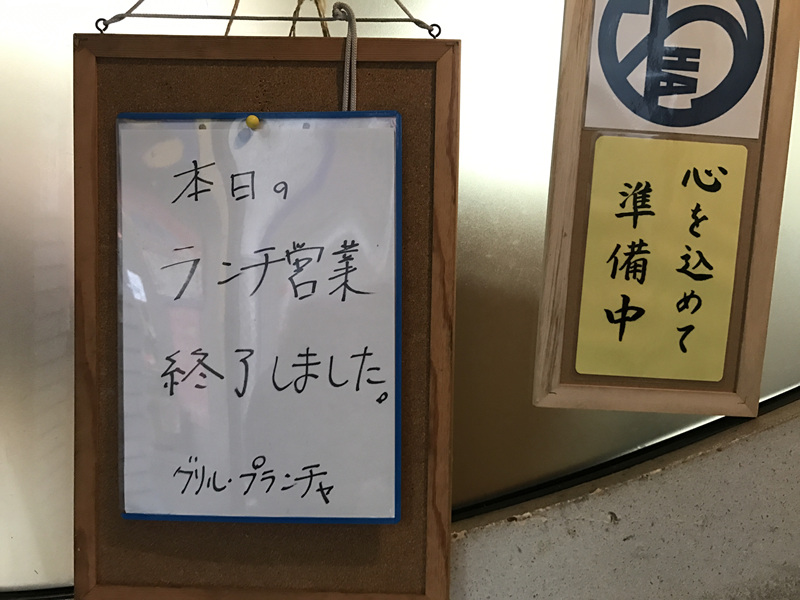 本日の
ランチ営業
終了しました。
グリル・プランチャ
心を込めて
準備中